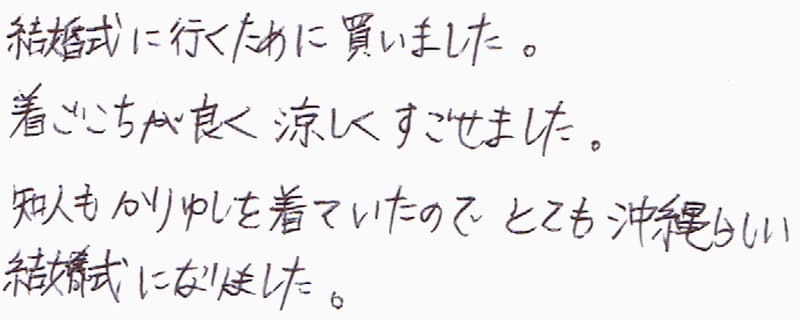 結婚式に行くために買いました。
着ごこちが良く涼しくすごせました。
知人もかりゆしを着ていたのでとても沖縄らしい
結婚式になりました。